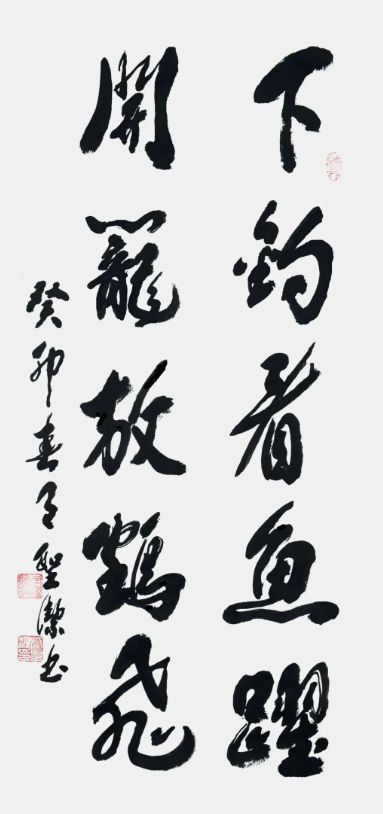 下釣看魚躍
開籠放鶴飛
癸卯春月聖潔書